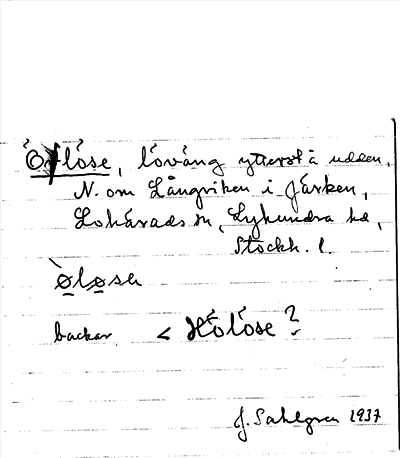 Ölöse, löväng ytterst å udden,
N. om Långviken i Järken,
Lohärads sn, Lyhundra hd,
Stockh. l.
øløsen
backar < Hölöse?
J. Sahlgren 1937